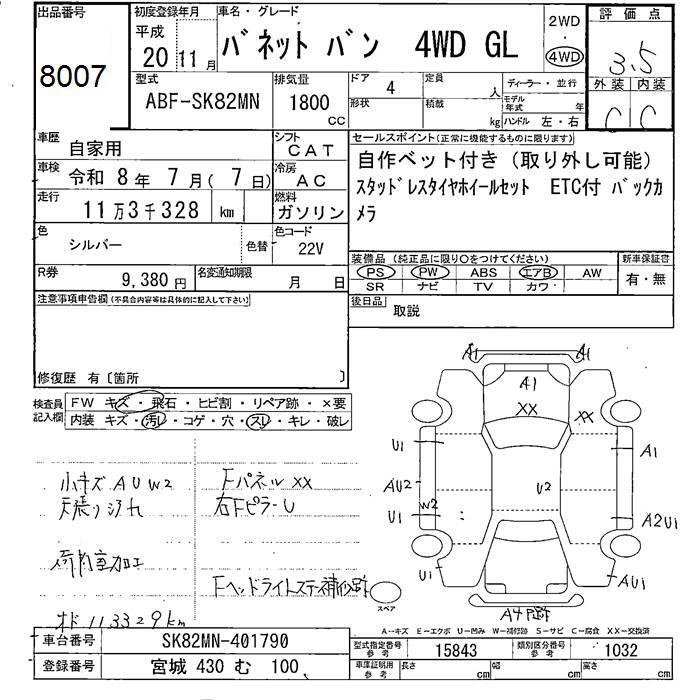 出品番号
8007
初度登録年月
平成
20 11 月
車名・グレード
バネットバン 4WD GL
2WD
・
4WD
評価点
3.5
外装 内装
C C
型式
ABF-SK82MN
排気量
1800
CC
ドア
4
定員
人
形状
積載
kg
ディーラー・並行
モデル年式
年
ハンドル 左・右
車歴
自家用
シフト
CAT
車検
令和 8年 7月( 7日)
冷房
AC
走行
11万3千328 km
燃料
ガソリン
色
シルバー
色替
色コード
22V
R券
9,380円
名変通知期限
月 日
セールスポイント(正常に機能するものに限ります)
自作ベット付き(取り外し可能)
スタッドレスタイヤホイールセット ETC付 バックカ
メラ
装備品(純正品に限り○をつけてください)
PS PW ABS エアB AW
SR ナビ TV カワ
新車保証書
有・無
後日品
取説
注意事項申告欄(不具合内容等は具体的に記入して下さい)
修復歴 有〔箇所 〕
検査員
記入欄
FW キズ・飛石・ヒビ割・リペア跡・×要
内装 キズ・汚レ・コゲ・穴・スレ・キレ・破レ
小キズ A U W2
天張り汚れ
荷内室加工
オド 113329km
Fパネル XX
右Fピラー U
Fヘッドライトステー補修跡
A1 A1
A1
XX XX
U1 A1
AU2 U2
W2
U1 A2U1
U1 AU1
スペア
A4 P跡
A--キズ E--エクボ U--凹み W--補修跡 S--サビ C--腐食 XX--交換済
車台番号
SK82MN-401790
登録番号
宮城 430 む 100
型式指定番号
参考
15843
類別区分番号
参考
1032
車庫証明用
参考
長さ
cm
幅
cm
高さ
cm